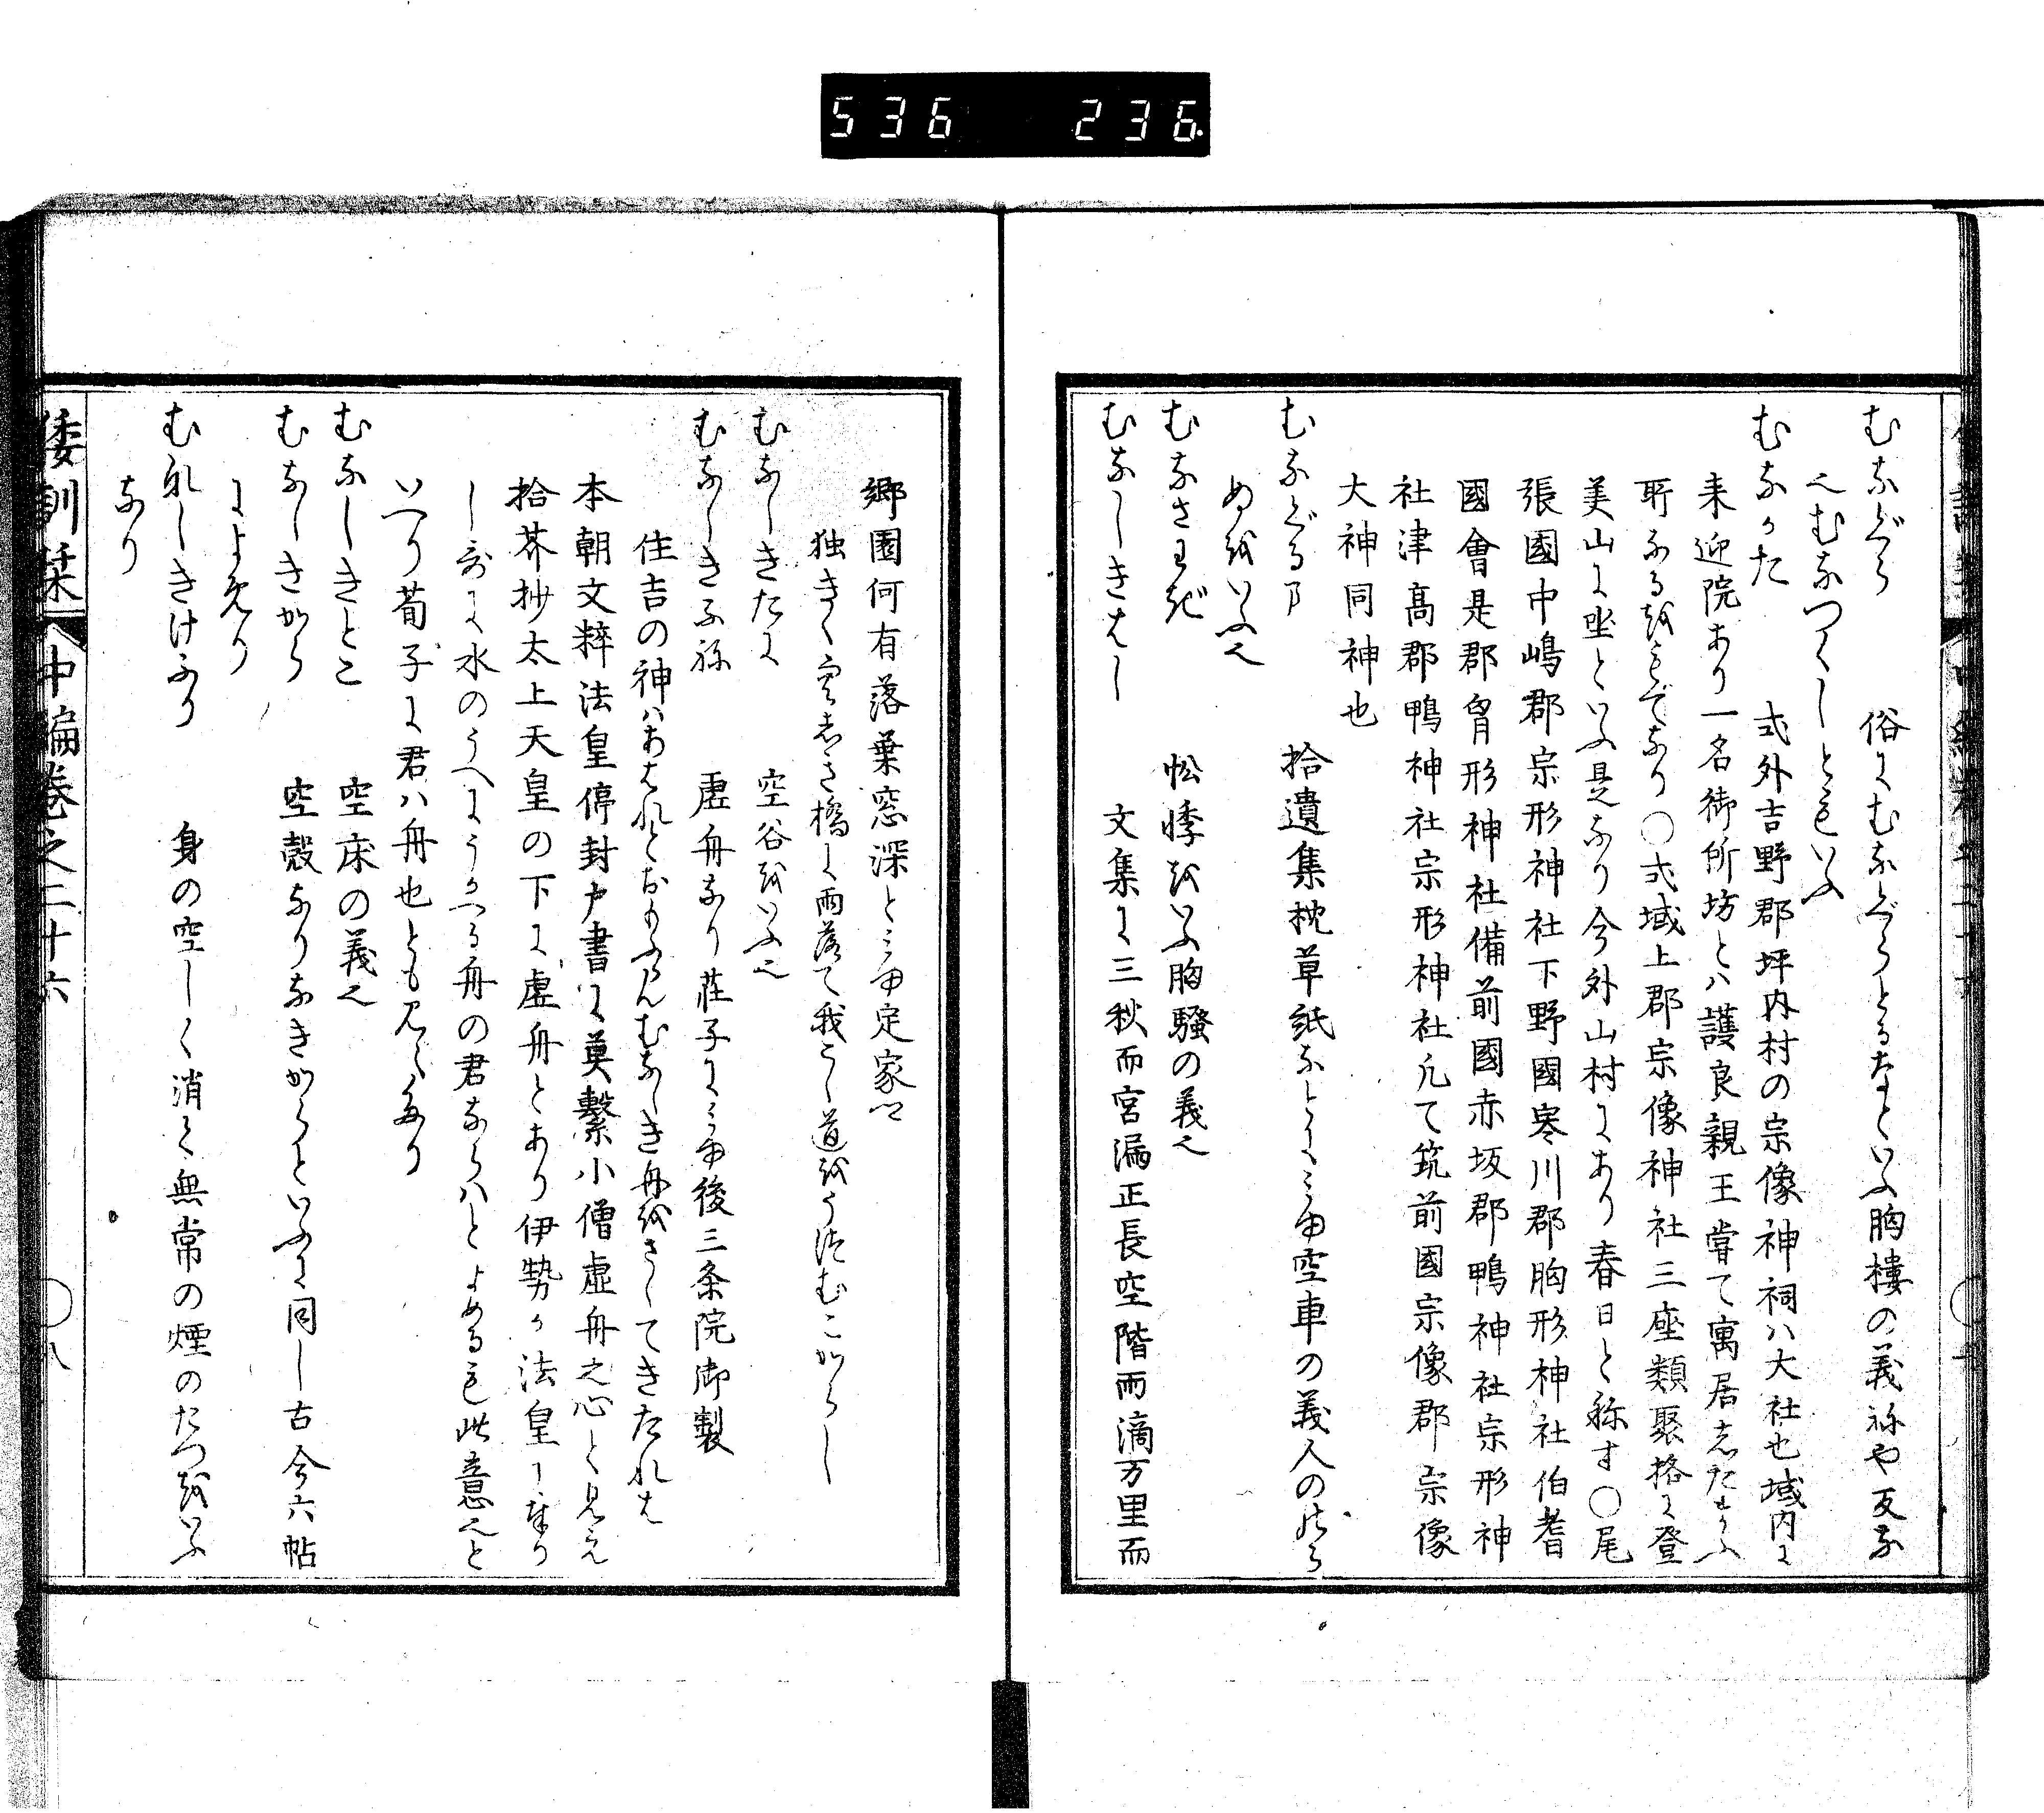 536 236
むなぐら 俗にむなぐらとるなといふ胸樓の義ねや反な
也むなつくしともいふ
むなかた 式外吉野郡坪内村の宗像神祠ハ大社也域内に
来迎院あり一名御所坊とハ護良親王嘗て寓居したまふ
所なるをもてなり〇式城上郡宗像神社三座類聚格に登
美山に坐といふ是なり今外山村にあり春日と称す〇尾
張國中嶋郡宗形神社下野國寒川郡胸形神社伯耆
國會是郡胷形神社備前國赤坂郡鴨神社宗形神
社津高郡鴨神社宗形神社凡て筑前國宗像郡宗像
大神同神也
むなぐるま 拾遺集枕草紙なとに見ゆ空車の義人ののら
ぬをいふ也
むなさわぎ 忪悸をいふ胸騒の義也
むなしきはし 文集に三秋而宮漏正長空階雨滴万里而
郷園何有落葉窓深と見ゆ定家卿
独きく空しき橋に雨落て我こし道をうつむこがらし
むなしきたに 空谷をいふ也
むなしきふね 虚舟なり荘子に見ゆ後三条院御製
住吉の神ハあはれとおもふらんむなしき舟をさしてきたれは
本朝文粹法皇停封戸書に莫繫小僧虚舟之心と見え
拾芥抄太上天皇の下に虚舟とあり伊勢か法皇に奉り
し哥に水のうへにうかへる舟の君ならハとよめるも此意也と
いへり荀子に君ハ舟也とも見えたり
むなしきとこ 空床の義也
むなしきから 空殻なりなきからといふに同し古今六帖
によめり
むなしきけふり 身の空しく消て無常の煙のたつをいふ
なり
倭訓栞 中編巻之二十六 〇八